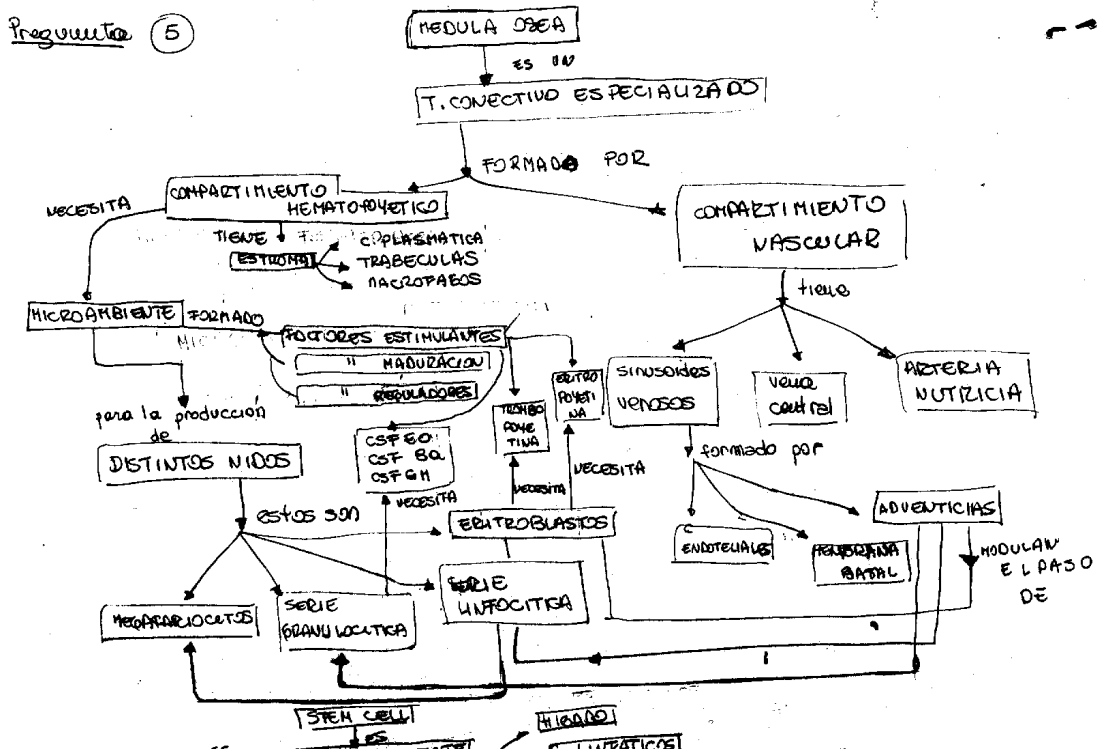 Pregunta 5
MEDULA OSEA
ES UN
T. CONECTIVO ESPECIALIZADO
FORMADO POR
COMPARTIMIENTO
HEMATOPOYETICO
NECESITA
TIENE
ESTROMA
C. PLASMATICA
TRABECULAS
MACROFAGOS
COMPARTIMIENTO
VASCULAR
tiene
MICROAMBIENTE
FORMADO
FACTORES ESTIMULANTES
" MADURACION
" REGULADORES
para la producción
de
DISTINTOS NIDOS
CSF EO
CSF BQ
CSF GM
NECESITA
TROMBO
POYE
TINA
NECESITA
ERITRO
POYETI
NA
NECESITA
sinusoides
venosos
vena
central
ARTERIA
NUTRICIA
formado por
C
ENDOTELIALES
MEMBRANA
BASAL
ADVENTICIAS
MODULAN
EL PASO
DE
estos son
ERITROBLASTOS
MEGACARIOCITOS
SERIE
GRANULOCITICA
SERIE
LINFOCITICA
STEM CELL
ES
HIGADO
LINFATICOS